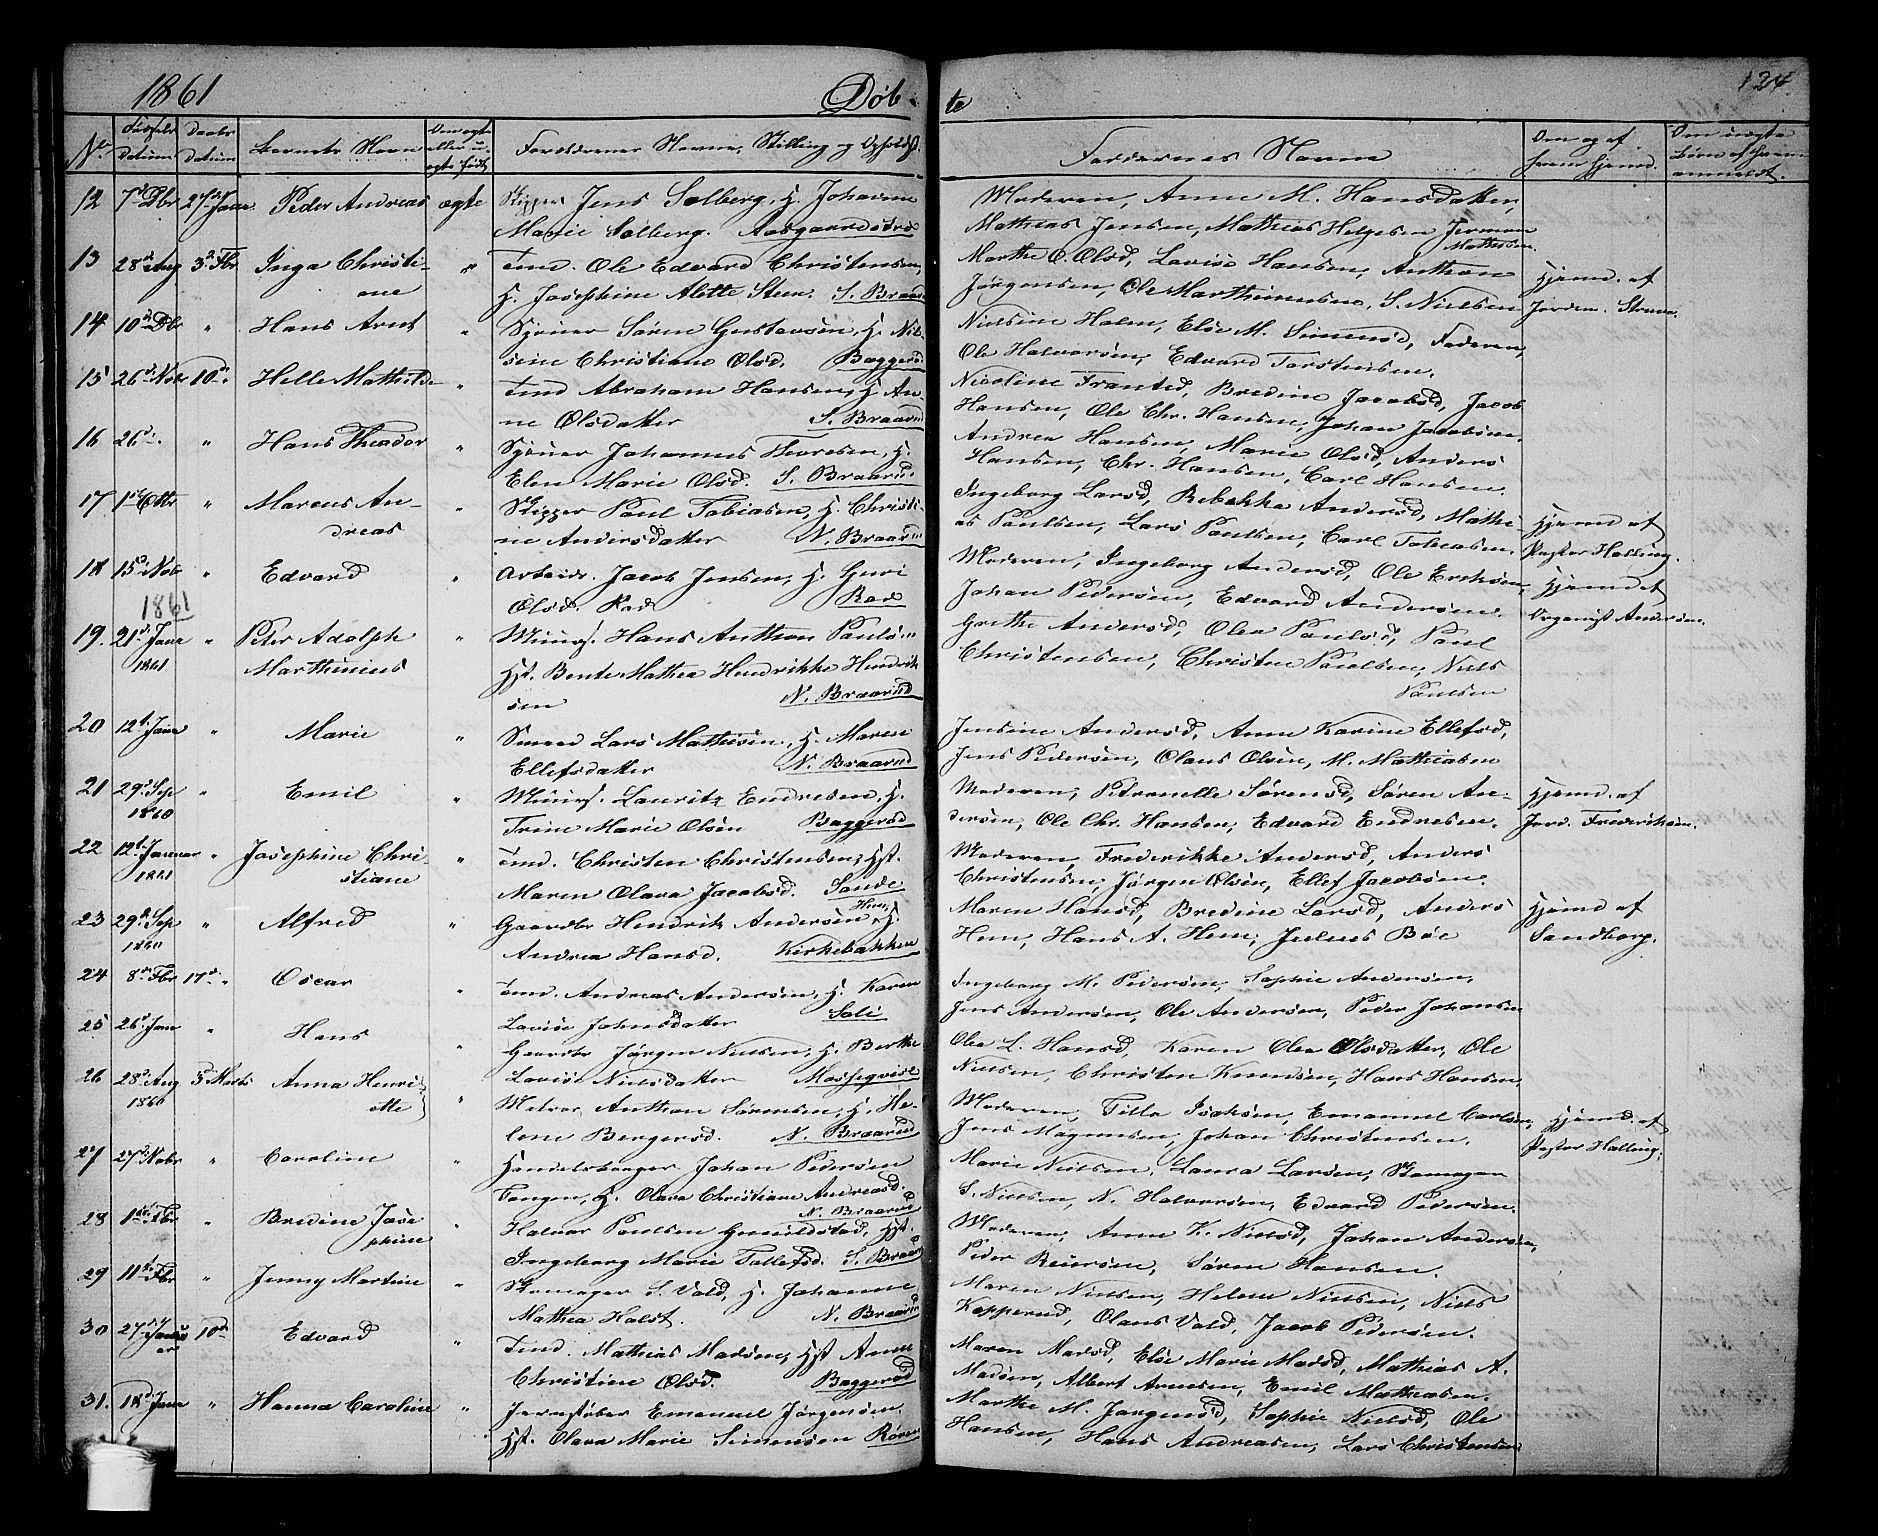 1861
Døb-
te
124.
No
Fødsels
Datum
Daabs
Datum
Barnets Navn
Om ægte
eller u-
ægte født
Forældrenes Navne, Stilling og Opholdst.
Faddernes Navne
Om og af
hvem hjemd.
Om uægte
Børn af hvem
anmeldt.
12 7d Dbr 27d Janr Peder Andreas ægte Skipper Jens Solberg, H. Johanne
Marie Solberg. Aasgaardstrd
Moderen, Anne M. Hansdatter,
Mathias Jensen, Mathias Helgesen
Mathisen.
13 28d Aug 3d Fbr Inga Christi-
ane
" Tmd. Ole Edvard Christensen,
H. Josephine Alette Steen. S. Braard
Marthe O. Olsd, Lovise Hansen, Anthon
Jørgensen, Ole Marthiniusen, S. Nielsen
Hjemd. af
Jordm. Strøm.
14 10d Dbr " Hans Arnt " Sjøuer Søren Gustavsen, H. Nil-
sine Christiane Olsd. Baggerød
Nielsine Holm, Else M. Simensd, Faderen,
Ole Halvorsen, Edvard Torstensen.
15 26d Nobr 10d. Helle Mathilde " Tmd Abraham Hansen, H. An-
ne Olsdatter S. Braarud
Nicoline Frantsd, Bredine Jacobsd, Jacob
Hansen, Ole Chr. Hansen, Johan Jacobsen.
16 26d. " Hans Theodor " Sjøuer Johannes Thoresen, H.
Elen Marie Olsd. S. Braarud
Andrea Hansen, Marie Olsd, Anders
Hansen, Chr. Hansen, Carl Hansen.
17 1st Octbr " Marcus An-
dreas
" Skipper Paul Tobiasen, H. Christi-
ne Andersdatter N. Braarud
Ingeborg Larsd, Rebekka Andersd, Mathi-
as Paulsen, Lars Paulsen, Carl Tobiasen.
Hjemd af
Pastor Halling.
18 15d Nobr " Edvard " Arbeidr. Jacob Jensen, H. Guri
Olsd. Rød Rød
Moderen, Ingeborg Andersd, Ole Ericksen,
Johan Pedersen, Edvard Andersen.
Hjemd af
Organist Andersen.
1861
19. 21d Janr
1861
" Peter Adolph
Marthinius
" Muurs. Hans Anthon Paulsen
Hst. Bente Mathea Hendrikke Hendrik
sen N. Braarud
Grethe Andersd, Olea Paulsd, Paul
Christensen, Christen Paulsen, Niels
Paulsen
20 12t Janr " Marie " Smed Lars Mathisen, H. Maren
Ellefsdatter N. Braarud
Jensine Andersd, Anne Karine Ellefsd,
Jens Pedersen, Olaus Olsen, M. Mathiasen
21 29d Sep
1860
" Emil " Muurs. Lauritz Endresen, H.
Trine Marie Olsen Baggerød
Moderen, Petronelle Sørensd, Søren An-
dersen, Ole Chr. Hansen, Edvard Endresen.
Hjemd. af
Jord. Frederiksen.
22 12t Januar
1861
" Josephine Chri-
stiane
" Tmd. Christen Christensen, Hst.
Maren Olava Jacobsd. Sande
Moderen, Frederikke Andersd, Anders
Christensen, Jørgen Olsen, Ellef Jacobsen.
23 29d Sep
1860
" Alfred " Gaardbr Hendrik Andersen Hem, H.
Andrea Hansd. Kirkebakken
Maren Hansd, Bredine Larsd, Anders
Hem, Hans A. Hem, Julius Bøe
Hjemd af
Sandborg.
24 8d Fbr 17d. " Oscar " Tmd. Andreas Andersen, H. Karen
Lovise Johnsdatter Soli
Ingeborg M. Pedersen, Sophie Andersen,
Jens Andersen, Ole Andersen, Peder Johansen
25 26d Jan " Hans " Gaardbr Jørgen Nielsen, H. Berthe
Lovise Nielsdatter Masseqvist
Olea L. Hansd, Karen Olea Olsdatter, Ole
Nielsen, Christen Knudsen, Hans Hansen.
26 28d Aug
1860
3d Marts Anna Henri-
ette
" Matros Anthon Sørensen, H. He-
lene Bergersd. N. Braarud
Moderen, Tilla Isaksen, Emanuel Carlsen,
Jens Magnusen, Johan Christensen.
Hjemd. af
Pastor Halling.
27 27d Nobr " Caroline " Handelsborger Johan Pedersen
Tangen, H. Olava Christiane Andreasd.
N. Braarud
Marie Nielsen, Laura Larsen, Skomager
S. Nielsen, N. Halvorsen, Edvard Pedersen.
28 1ste Fbr " Bredine Jose
phine
" Halvor Paulsen Gunildstad, Hst.
Ingeborg Marie Tollefsd. S. Braard
Moderen, Anne K. Nielsd, Johan Andersen,
Peder Reiersen, Søren Hansen.
29 11te Fbr " Jenny Martine " Skomager S. Vald, H. Johanne
Mathea Holst. N. Braarud
Maren Nielsen, Helene Nielsen, Niels
Kopperud, Olaus Vald, Jacob Pedersen.
30 27d Janu
ar
10d Edvard " Tmd. Mathias Madsen, Hst Anne
Christine Olsd. Baggerød
Maren Madsd, Else Marie Madsd, Mathias A.
Madsen, Albert Arnesen, Emil Mathiasen.
31. 18d Janr " Hanna Caroline " Jernstøber Emanuel Jørgensen,
Hst. Olava Marie Simensen Røren
Marthe M. Jørgensd, Sophie Nielsd, Ole
Hansen, Hans Andreasen, Lars Christensen